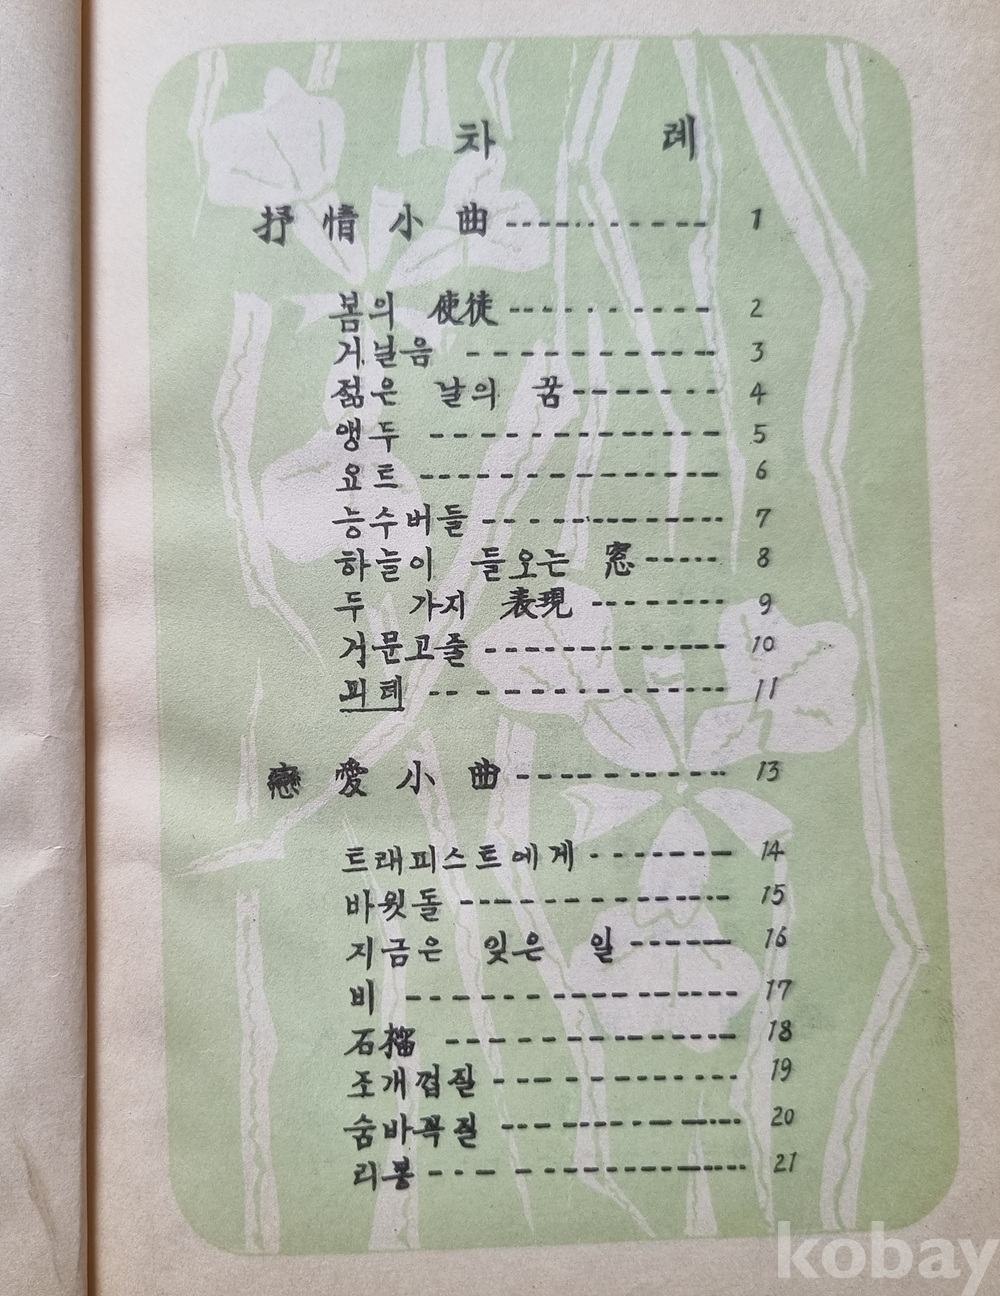 차 례
抒情小曲----------- 1
봄의 使徒----------- 2
거닐음 ----------- 3
젊은 날의 꿈-------- 4
앵두 ------------- 5
요트 ------------- 6
능수버들 ----------- 7
하늘이 들오는 窓----- 8
두 가지 表現 ------- 9
거문고줄 ----------- 10
피테 ------------- 11
戀愛小曲----------- 13
트래피스트에게 ------- 14
바윗돌 ------------ 15
지금은 잊은 일 ------ 16
비 -------------- 17
石榴 ------------- 18
조개껍질 ----------- 19
숨바꼭질 ----------- 20
리봉 ------------- 21
kobay